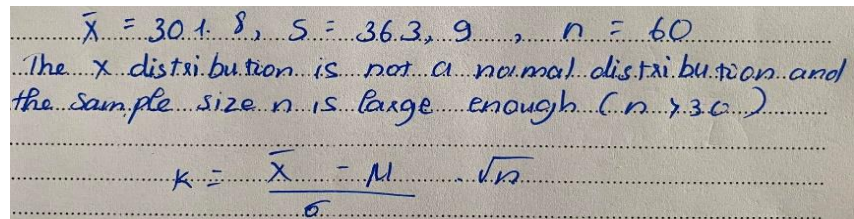 x̄ = 301.8, S = 363,9, n = 60
The x distribution is not a normal distribution and
the sample size n is large enough (n > 30)
K = (x̄ - μ)/σ . √n